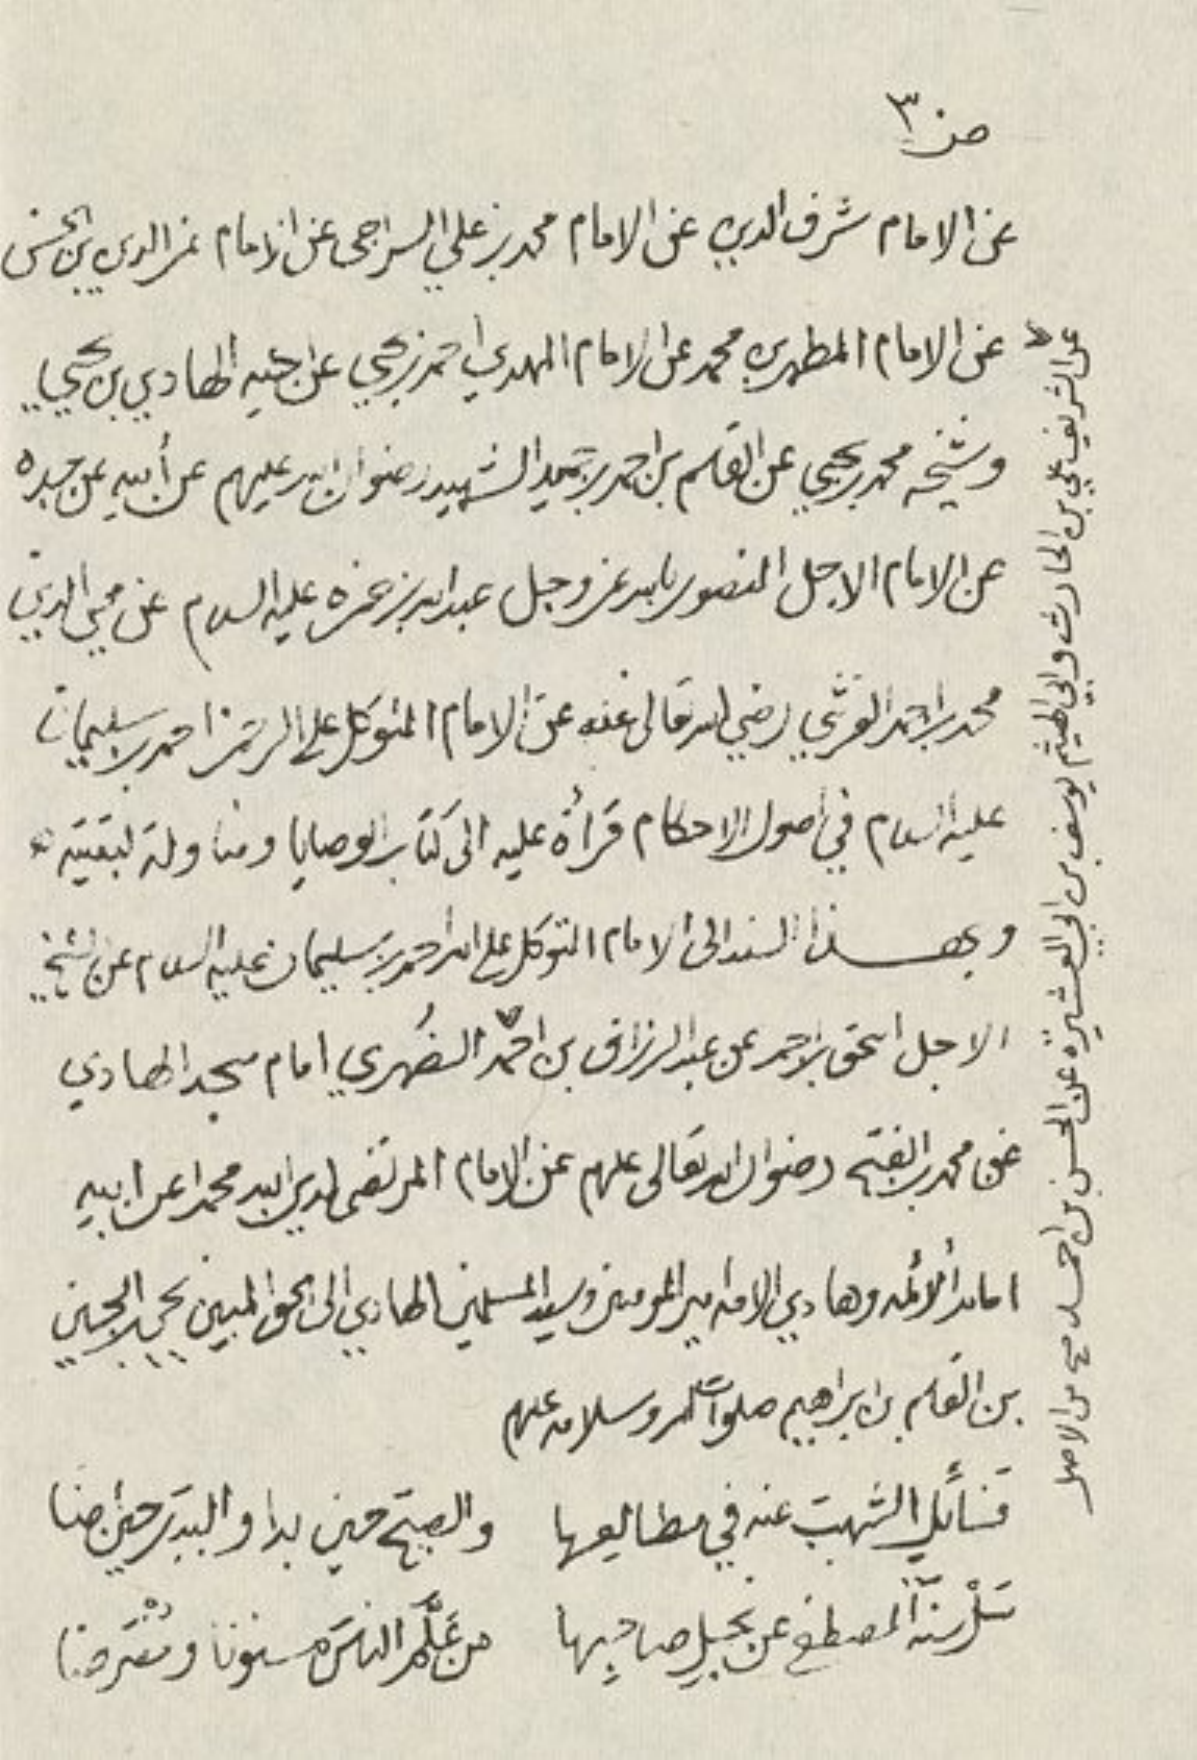 ص ٣
عن الامام شرف الدين عن الامام محمد بن علي السراجي عن الامام عز الدين بن الحسن
عن الامام المطهر بن محمد عن الامام المهدي احمد بن يحيى عن اخيه الهادي بن يحيى
وشيخه محمد بن يحيى عن القسم بن احمد بن حميد الشهيد رضوان الله عليهم عن أبيه عن جده
عن الامام الاجل المنصور بالله عز وجل عبد الله بن حمزه عليه السلام عن محي الدين
محمد بن احمد القرشي رضي الله تعالى عنه عن الامام المتوكل على الرحمن احمد بن سليمان
عليه السلام في أصول الاحكام قرأة عليه الى كتاب الوصايا ومناولة لبقيته
وبهذا السند الى الامام المتوكل على الله احمد بن سليمان عليه السلام عن الشيخ
الاجل اسحق بن احمد عن عبد الرزاق بن احمد الضُهري امام مسجد الهادي
عن محمد بن الفتح رضوان الله تعالى عليهم عن الامام المرتضى لدين الله محمد عن ابيه
امام الأئمه وهادي الامه امير المومنين وسيد المسلمين الهادي الى الحق المبين يحيى بن الحسين
بن القسم بن ابراهيم صلوات الله وسلامه عليهم
فسائل الشهب عنه في مطالعها والصبح حين بدا والبدر حين أضا
سل سنة المصطفى عن نجل صاحبها من علَّم الناس مسنونا ومفترضا
عن الشريف علي بن الحارث وابي الهيثم يوسف بن ابي العشيرة عن الحسن بن احمد صح من الاصل